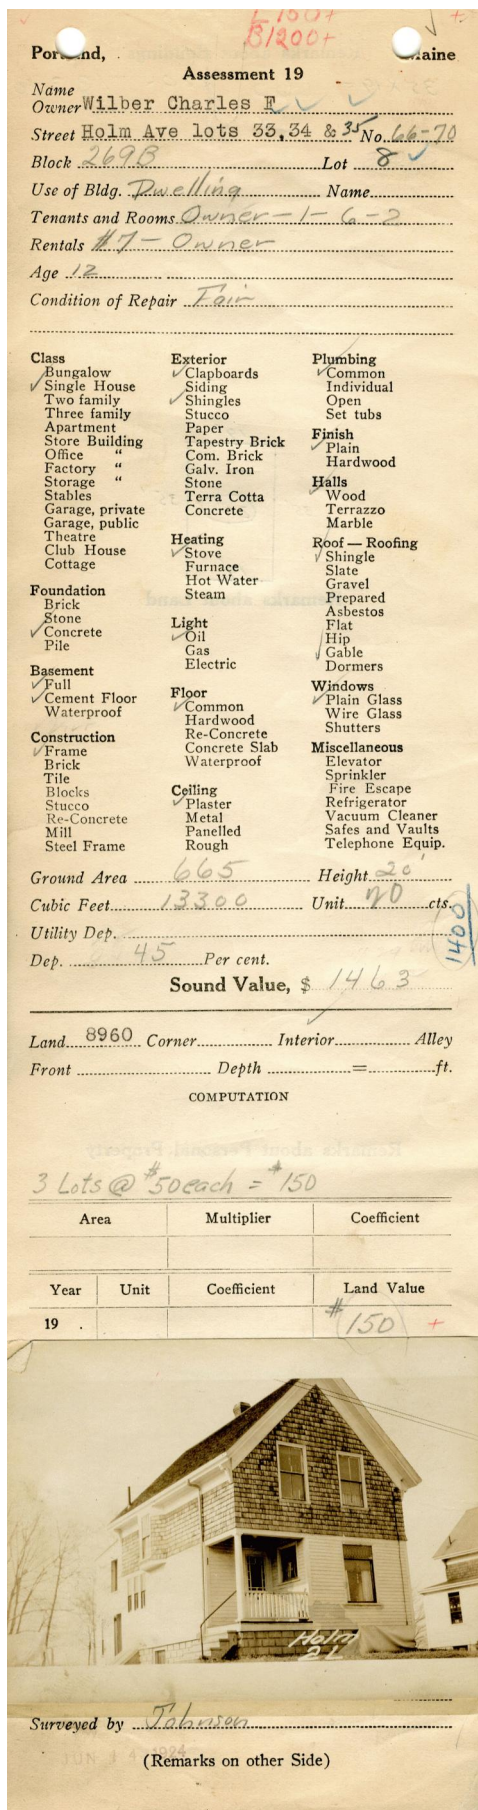 L 150+
B1200+
+
Portland, Maine
Assessment 19
Name
Owner Wilber Charles F
Street Holm Ave lots 33,34 & 35 No. 66-70
Block 269B Lot 8
Use of Bldg. Dwelling Name
Tenants and Rooms Owner-1-6-2
Rentals #7- Owner
Age 12
Condition of Repair Fair
Class
Bungalow
Single House
Two family
Three family
Apartment
Store Building
Office "
Factory "
Storage "
Stables
Garage, private
Garage, public
Theatre
Club House
Cottage
Foundation
Brick
Stone
Concrete
Pile
Basement
Full
Cement Floor
Waterproof
Construction
Frame
Brick
Tile
Blocks
Stucco
Re-Concrete
Mill
Steel Frame
Exterior
Clapboards
Siding
Shingles
Stucco
Paper
Tapestry Brick
Com. Brick
Galv. Iron
Stone
Terra Cotta
Concrete
Heating
Stove
Furnace
Hot Water
Steam
Light
Oil
Gas
Electric
Floor
Common
Hardwood
Re-Concrete
Concrete Slab
Waterproof
Ceiling
Plaster
Metal
Panelled
Rough
Plumbing
Common
Individual
Open
Set tubs
Finish
Plain
Hardwood
Halls
Wood
Terrazzo
Marble
Roof — Roofing
Shingle
Slate
Gravel
Prepared
Asbestos
Flat
Hip
Gable
Dormers
Windows
Plain Glass
Wire Glass
Shutters
Miscellaneous
Elevator
Sprinkler
Fire Escape
Refrigerator
Vacuum Cleaner
Safes and Vaults
Telephone Equip.
Ground Area 665 Height 20'
Cubic Feet 13300 Unit 20 cts.
Utility Dep.
1400
Dep. 45 Per cent.
Sound Value, $ 1463
Land 8960 Corner Interior Alley
Front Depth = ft.
COMPUTATION
3 Lots @ $50 each = $150
Area Multiplier Coefficient
Year Unit Coefficient Land Value
19 . #150 +
Holm
Surveyed by Johnson
JUN 1924
(Remarks on other Side)